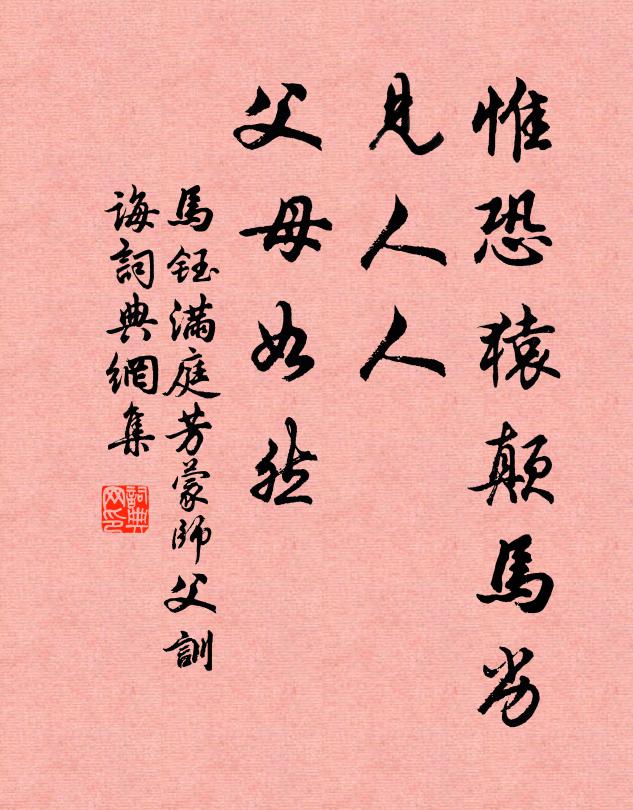 惟恐猿顛馬劣
見人人
父母如然
馬鈺滿庭芳蒙師父訓
誨詞典網集
詞典
网印